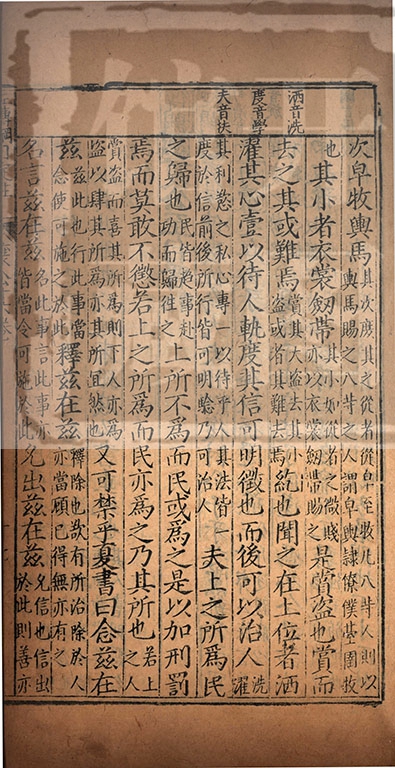 洒音洗
度音學
夫音扶
次皁牧輿馬其次庶其之從者從皁至牧凡八等人則以輿馬賜之八等之人謂皁輿隸僚僕臺圉牧
也其小者衣裳劒帶其小如從者之微賤亦以衣裳劒帶賜之是賞盜也賞而
去之其或難焉賞其大盜去其小盜或者其難去焉紇也聞之在上位者洒
濯其心壹以待人軌度其信可明徵也而後可以治人洗濯
其利慾之私心專一以待乎人其法皆一度於信前後所行皆可明驗乃可治人夫上之所爲民
之歸也民皆趍事赴功而歸往之上所不爲而民或爲之是以加刑罰
焉而莫敢不懲若上之所爲而民亦爲之乃其所也若上之人
賞盜而喜其所爲則下人亦爲盜以肆其所爲亦其所宜然也又可禁乎夏書曰念兹在
兹兹此也行此事當念使可施之於此釋兹在兹釋除也欲有所治除於人亦當顧已得無亦有之
名言兹在兹名此事言此事亦皆當令可施於此允出兹在兹允信也信出於此則善亦